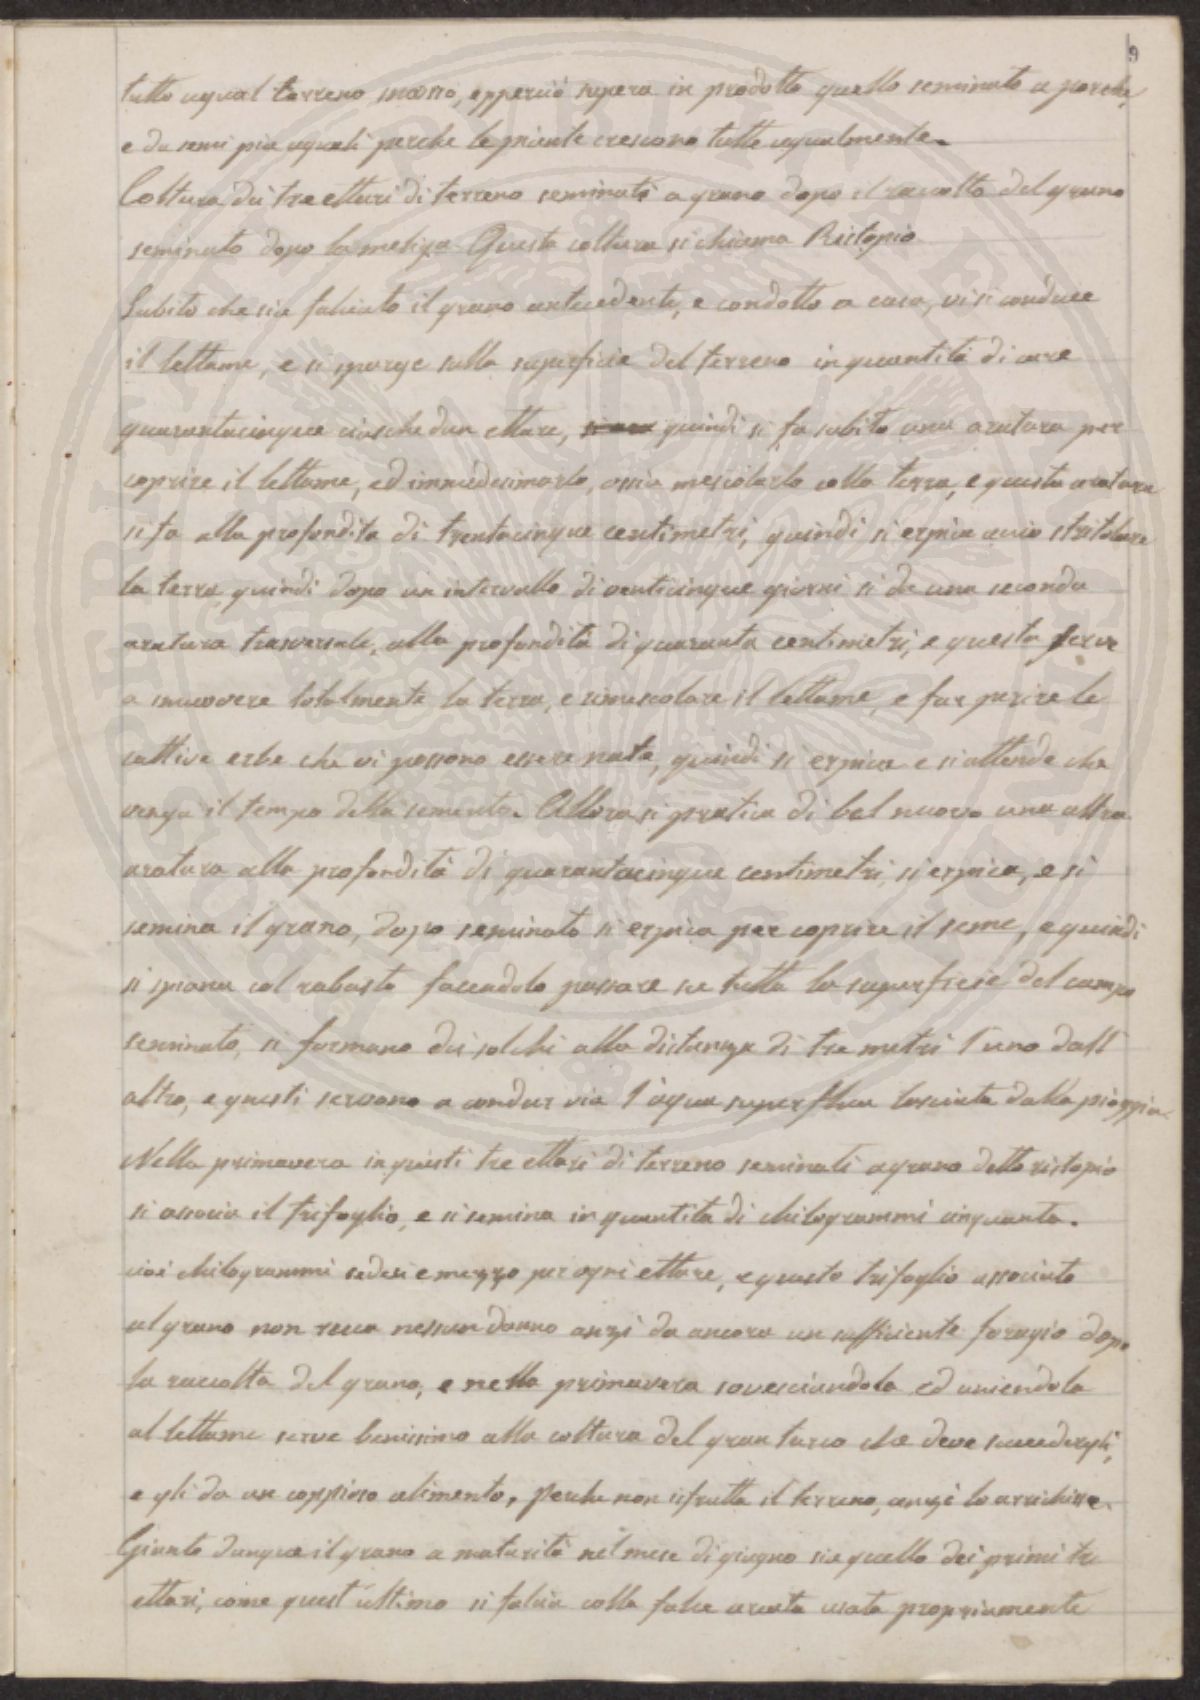 9
tutto ugual terreno smosso, epperciò supera in prodotto quello seminato a porche,
e da semi più uguali perche le piante crescono tutte ugualmente.
Coltura dei tre ettari di terreno seminati a grano dopo il raccolto del grano
seminato dopo la meliga Questa coltura si chiama Ristopio
Subito che sia falciato il grano antecedente, e condotto a casa, vi si conduce
il lettame, e si sparge sulla superficie del terreno in quantità di care
quarantacinque ciaschedun ettare, quindi si fa subito una aratura per
coprire il lettame, ed immedesimarlo, ossia mescolarlo colla terra, e questa aratura
si fa alla profondita di trentacinque centimetri, quindi si erpica acciò stritolare
la terra, quindi dopo un intervallo di venticinque giorni si da una seconda
aratura trasversale, alla profondità di quaranta centimetri, e questa serve
a smuovere totalmente la terra, e rimescolare il lettame, e far perire le
cattive erbe che vi possono essere nate, quindi si erpica e si attende che
venga il tempo della semente. Allora si pratica di bel nuovo una altra
aratura alla profondità di quarantacinque centimetri, si erpica, e si
semina il grano, dopo seminato si erpica per coprire il seme, e quindi
si spiana col rabasto facendolo passare su tutta la superficie del campo
seminato, si formano dei solchi alla distanza di tre metri l'uno dall
altro, e questi servono a condur via l'aqua superflua lasciata dalla pioggia
Nella primavera in questi tre ettari di terreno seminati a grano detto ristopio
si associa il trifoglio, e si semina in quantita di chilogrammi cinquanta.
cioè chilogrammi sedesi e mezzo per ogni ettare, e questo trifoglio associato
al grano non reca nessun danno anzi da ancora un sufficiente foragio dopo
la raccolta del grano, e nella primavera sovesciandola ed uniendola
al lettame serve benissimo alla coltura del gran turco che deve succedergli,
e gli da un coppioso alimento, perche non isfrutta il terreno, anzi lo arrichisse.
Giunto dunque il grano a maturità nel mese di giugno sia quello dei primi tre
ettari, come quest'ultimo si falcia colla falce arcata usata propriamente